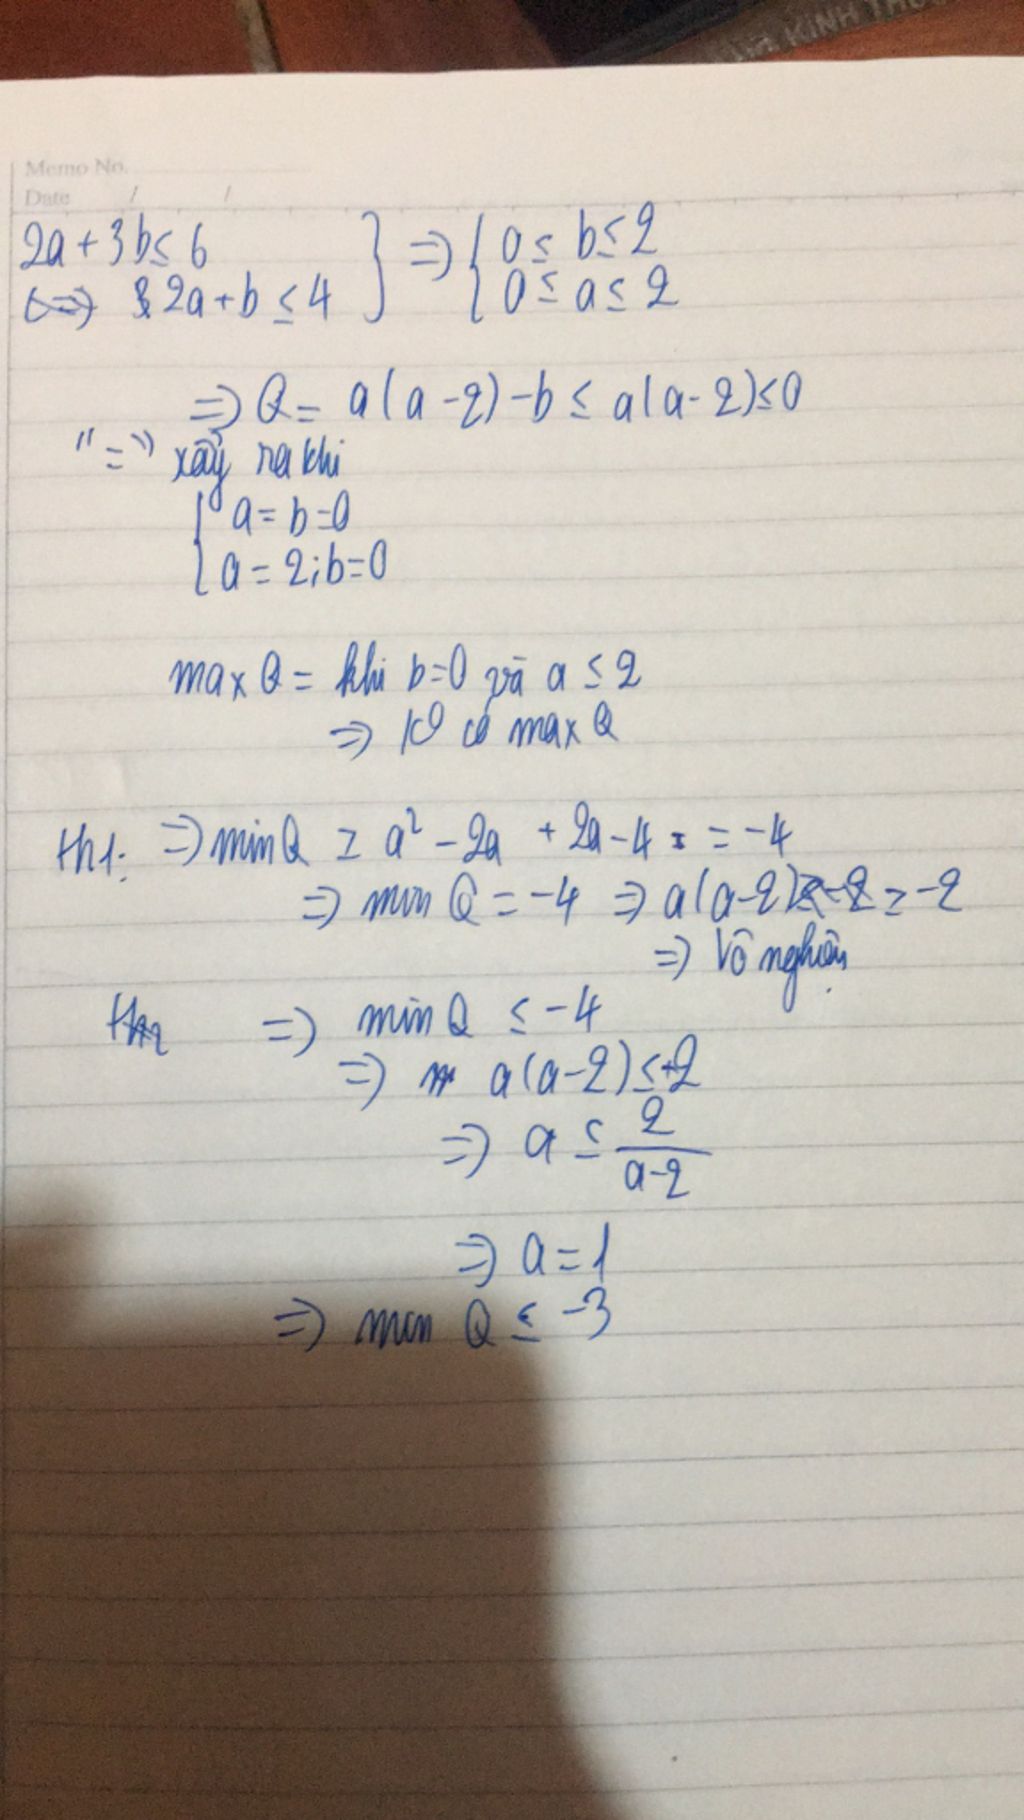 KINH
Memo No.
Date / /
2a + 3b ≤ 6 } => { 0 ≤ b ≤ 2
<=> 2a + b ≤ 4 } { 0 ≤ a ≤ 2
=> Q = a(a - 2) - b ≤ a(a - 2) ≤ 0
"=" xảy ra khi
{ a = b = 0
{ a = 2; b = 0
max Q = khi b = 0 và a ≤ 2
=> K0 có max Q
th1: => min Q ≥ a² - 2a + 2a - 4 = = -4
=> min Q = -4 => a(a - 2) = -2
=> Vô nghiệm
Th2 => min Q ≤ -4
=> a(a - 2) ≤ +2
=> a ≤ 2/(a - 2)
=> a = 1
=> min Q ≤ -3